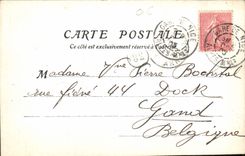 CARTE POSTALE
Ce côté est exclusivement réservé à l'adresse
Madame Vve Pierre Bockstal
44 Dock
Gand
Belgique